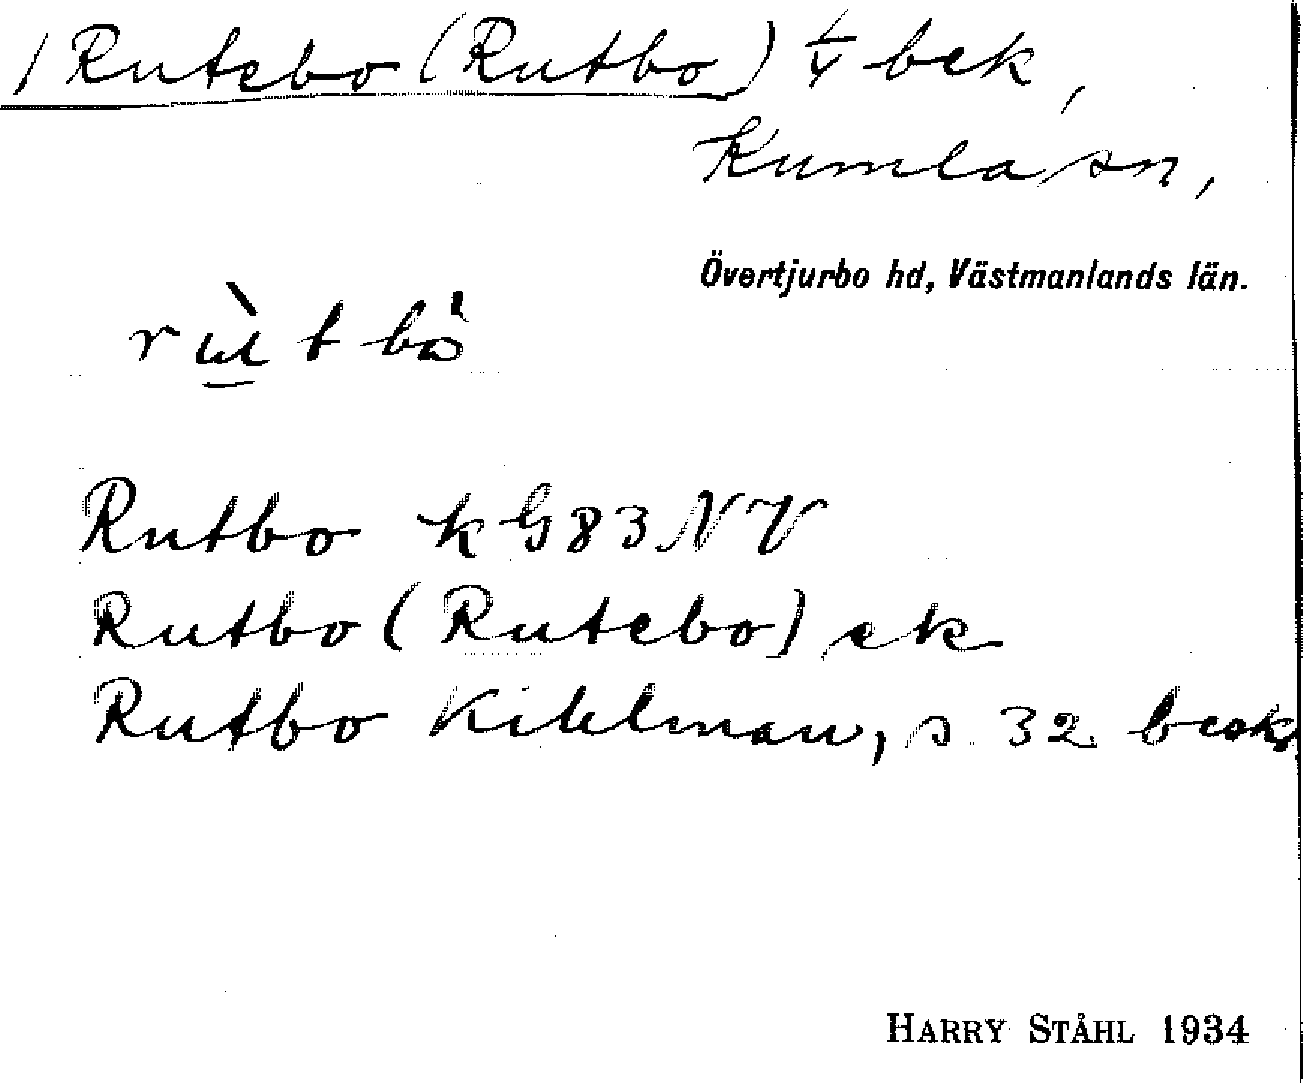 1 Rutebo (Rutbo) 1/4 bek,
Kumla sn,
Övertjurbo hd, Västmanlands län.
rùtbo
Rutbo k G83 NV
Rutbo (Rutebo) ek
Rutbo Kihlman, s 32 besk
HARRY STÅHL 1934